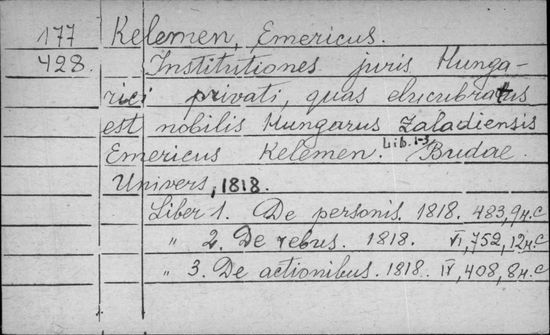 177 Kelemen, Emericus.
428. Institutiones juris Hunga-
rici privati, quas elucubratus
est nobilis Hungarus Zaladiensis
Emericus Kelemen. Lib. 1-3 Budae.
Univers, 1818.
Liber 1. De personis. 1818. 483, 9н.с
" 2. De rebus. 1818. VI, 752, 12н.с
" 3. De actionibus. 1818. IV, 408, 8н.с